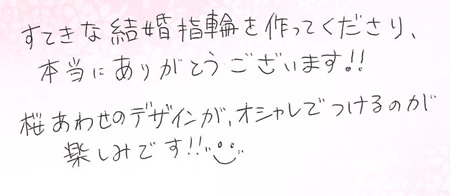 すてきな結婚指輪を作ってくださり、
本当にありがとうございます!!
桜あわせのデザインが、オシャレでつけるのが
楽しみです!!